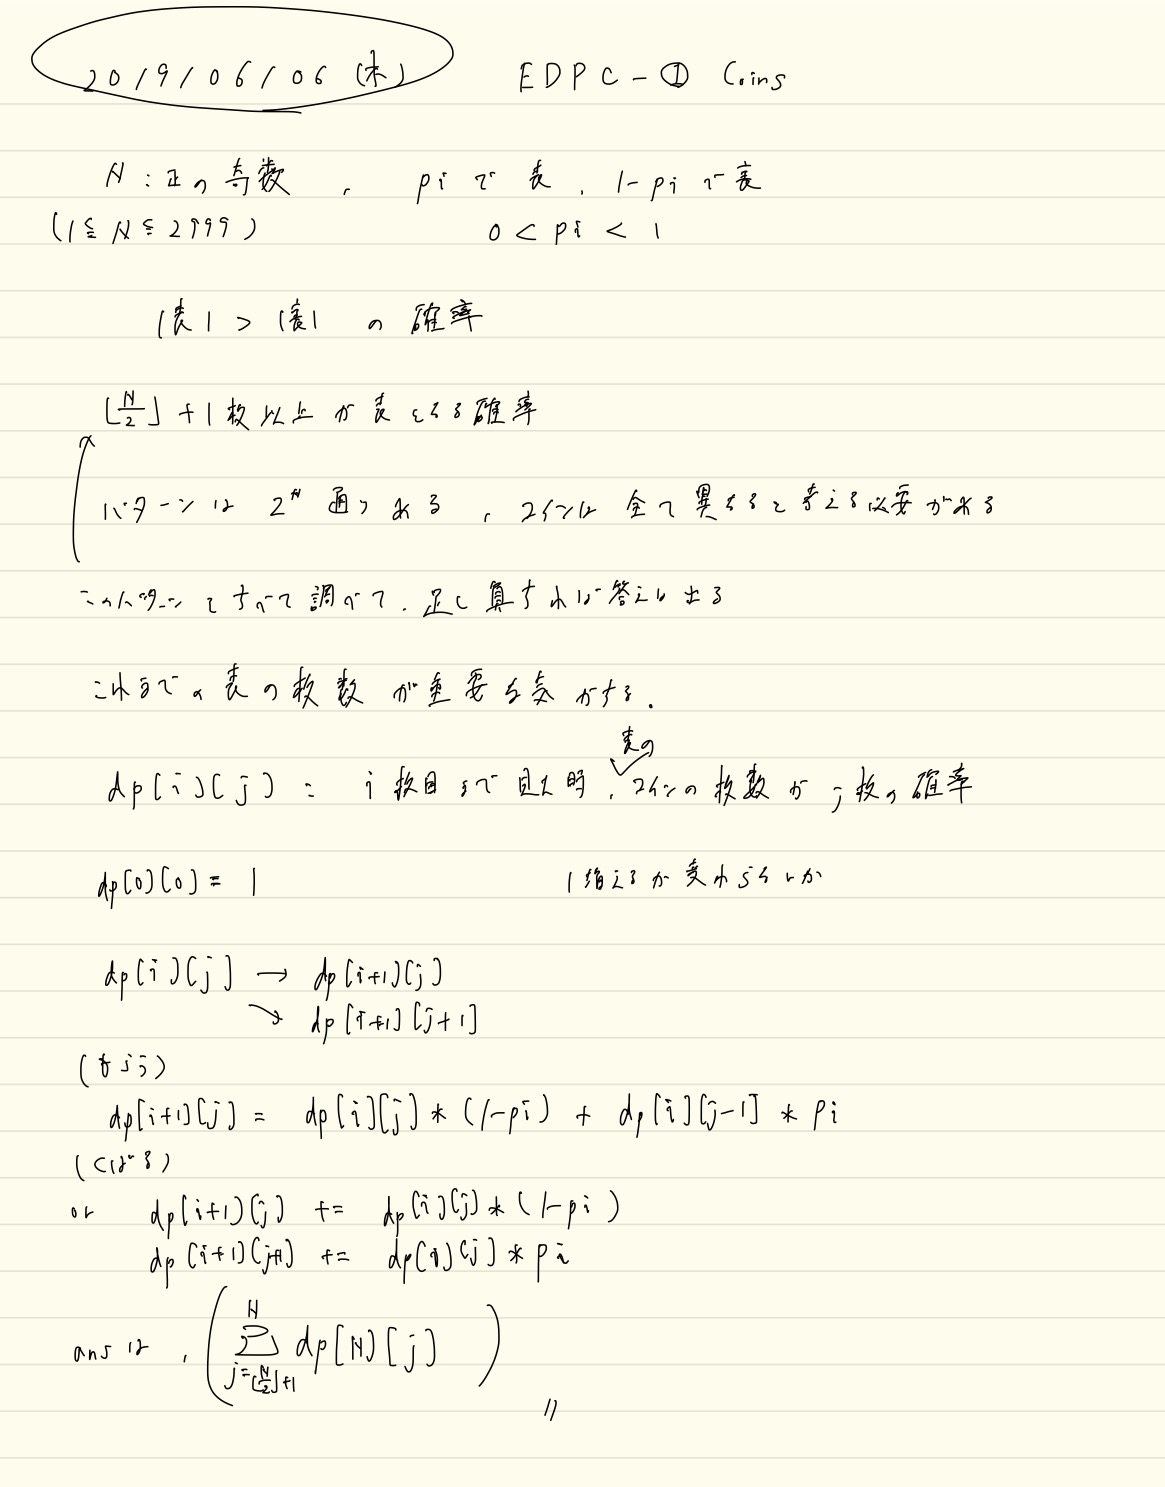 2019/06/06 (木) EDPC-① Coins
N : 正の奇数 , piで表, 1-piで裏
(1≦N≦2999) 0 < pi < 1
|表| > |裏| の確率
⌊N/2⌋+1枚以上が表となる確率
パターンは 2^N 通りある , コインは全て異なると考える必要がある
このパターンをすべて調べて, 足し算すれば答えは出る
これまでの表の枚数が重要な気がする.
表の
dp[i][j] : i枚目まで見た時, コインの枚数がj枚の確率
dp[0][0] = 1 1増えるか変わらないか
dp[i][j] → dp[i+1][j]
↘ dp[i+1][j+1]
(もらう)
dp[i+1][j] = dp[i][j] * (1-pi) + dp[i][j-1] * pi
(くばる)
or dp[i+1][j] += dp[i][j] * (1-pi)
dp[i+1][j+1] += dp[i][j] * pi
ans は , ( Σ_{j=⌊N/2⌋+1}^{N} dp[N][j] )
//